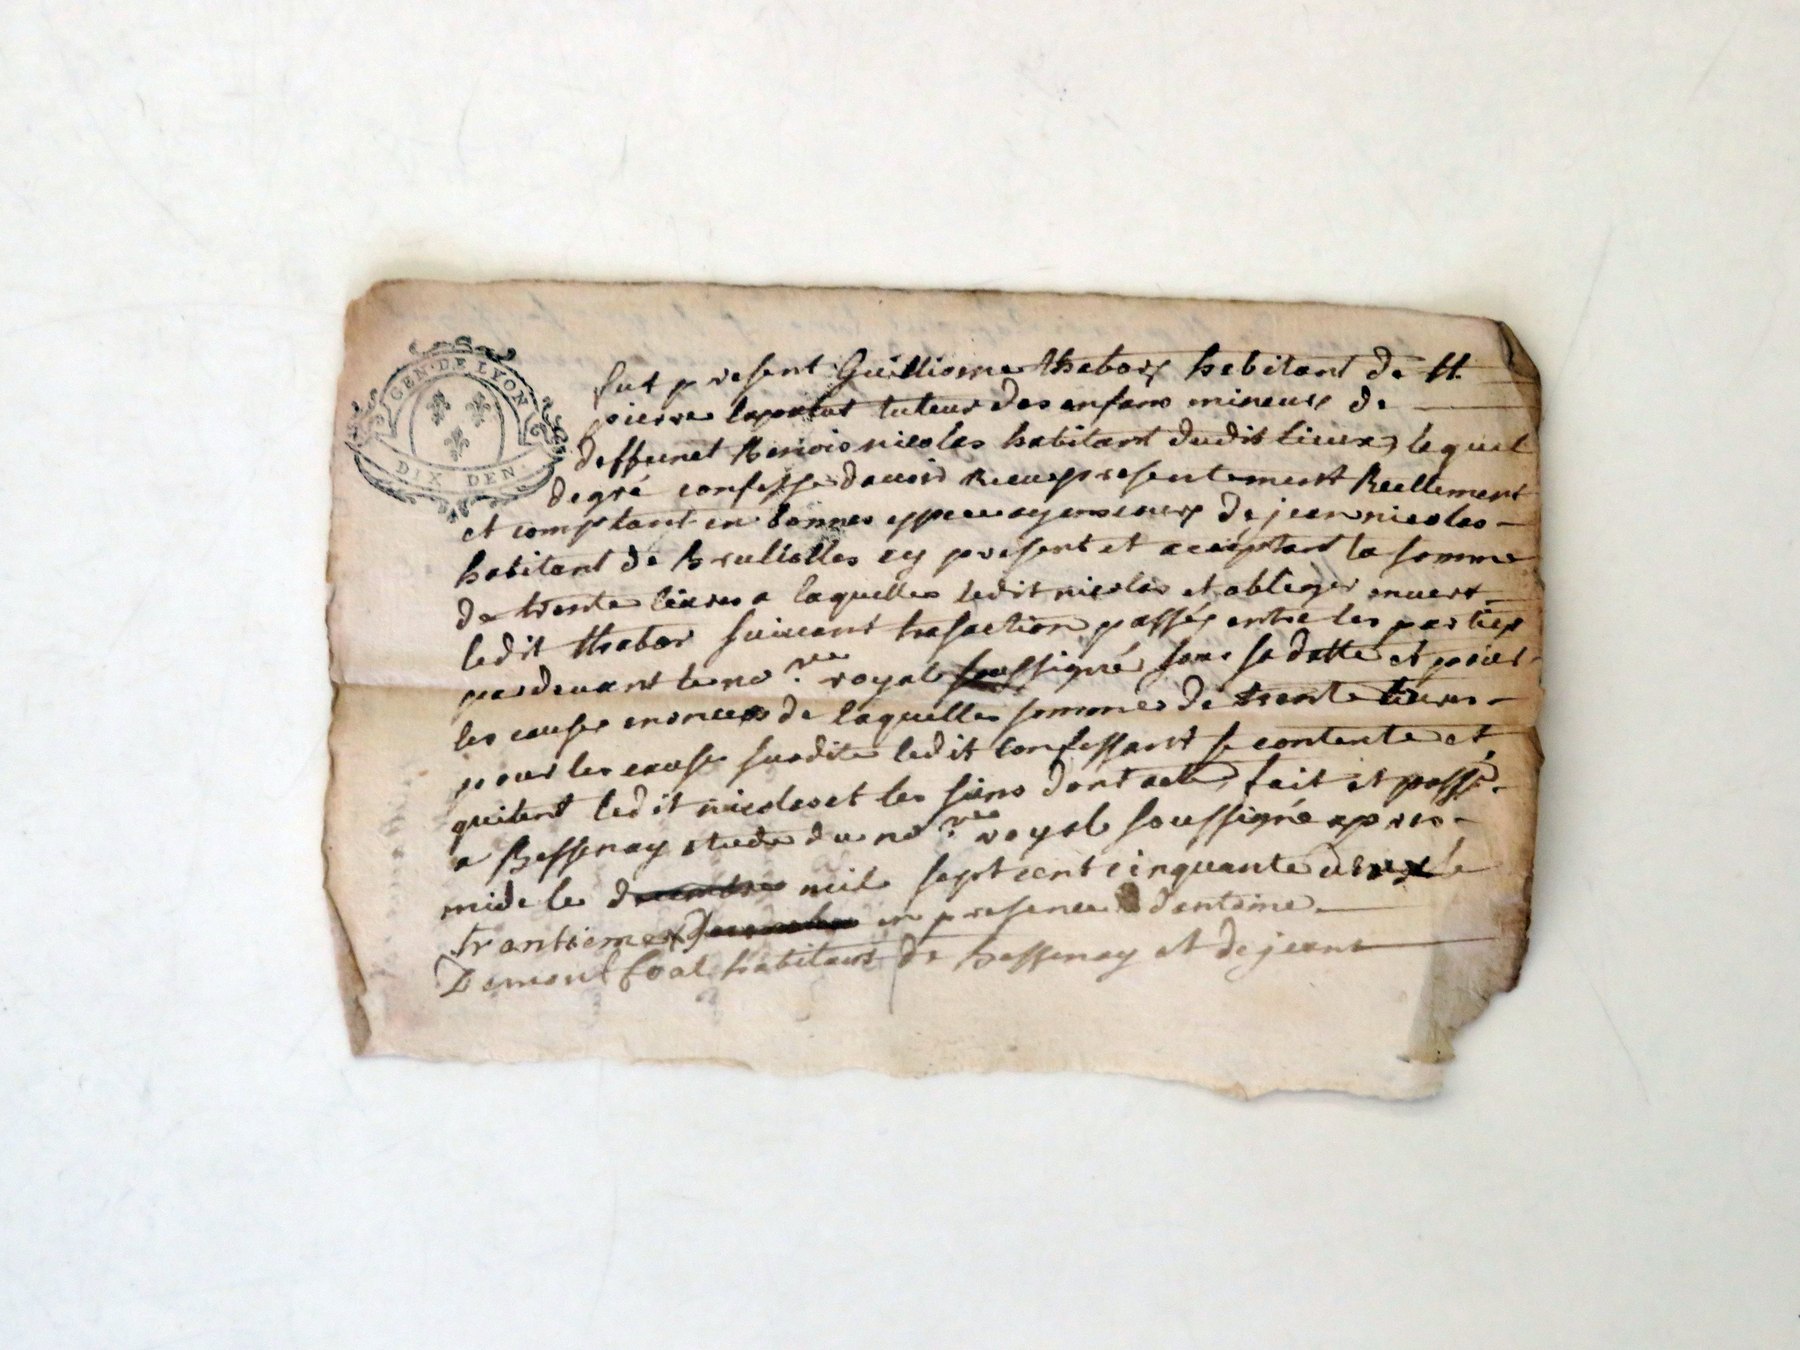 GEN · DE LYON
DIX DEN ·
fut present Guilliome thabory habitant de St
pierre lapalut tuteur des enfans mineurs de
deffunct Benoist nicolas habitant dudit lieux, lequel
degré confesse davoir Receu presentement Reellement
et comptant en bonnes de jean nicolas
habitant de Brullolles cy present et acceptant la somme
de trente livres a laquelle ledit nicolas et obliger envert
ledit thabor suivant trasaction passé entre les parties
pardevant le no.re royal soussigné sous sa datte et pour
les cause enoncees de laquelle somme de trente livres
pour les cause susdite ledit confessant se contente et
quitent ledit nicolas et les siens dont acte, fait et passé
a Bessenay etude du no.re royal soussigné apres
midi le decembre mil sept cent cinquante deux le
trantieme Decembre en presence dantoine
Demont habitant de bessenay et de jean